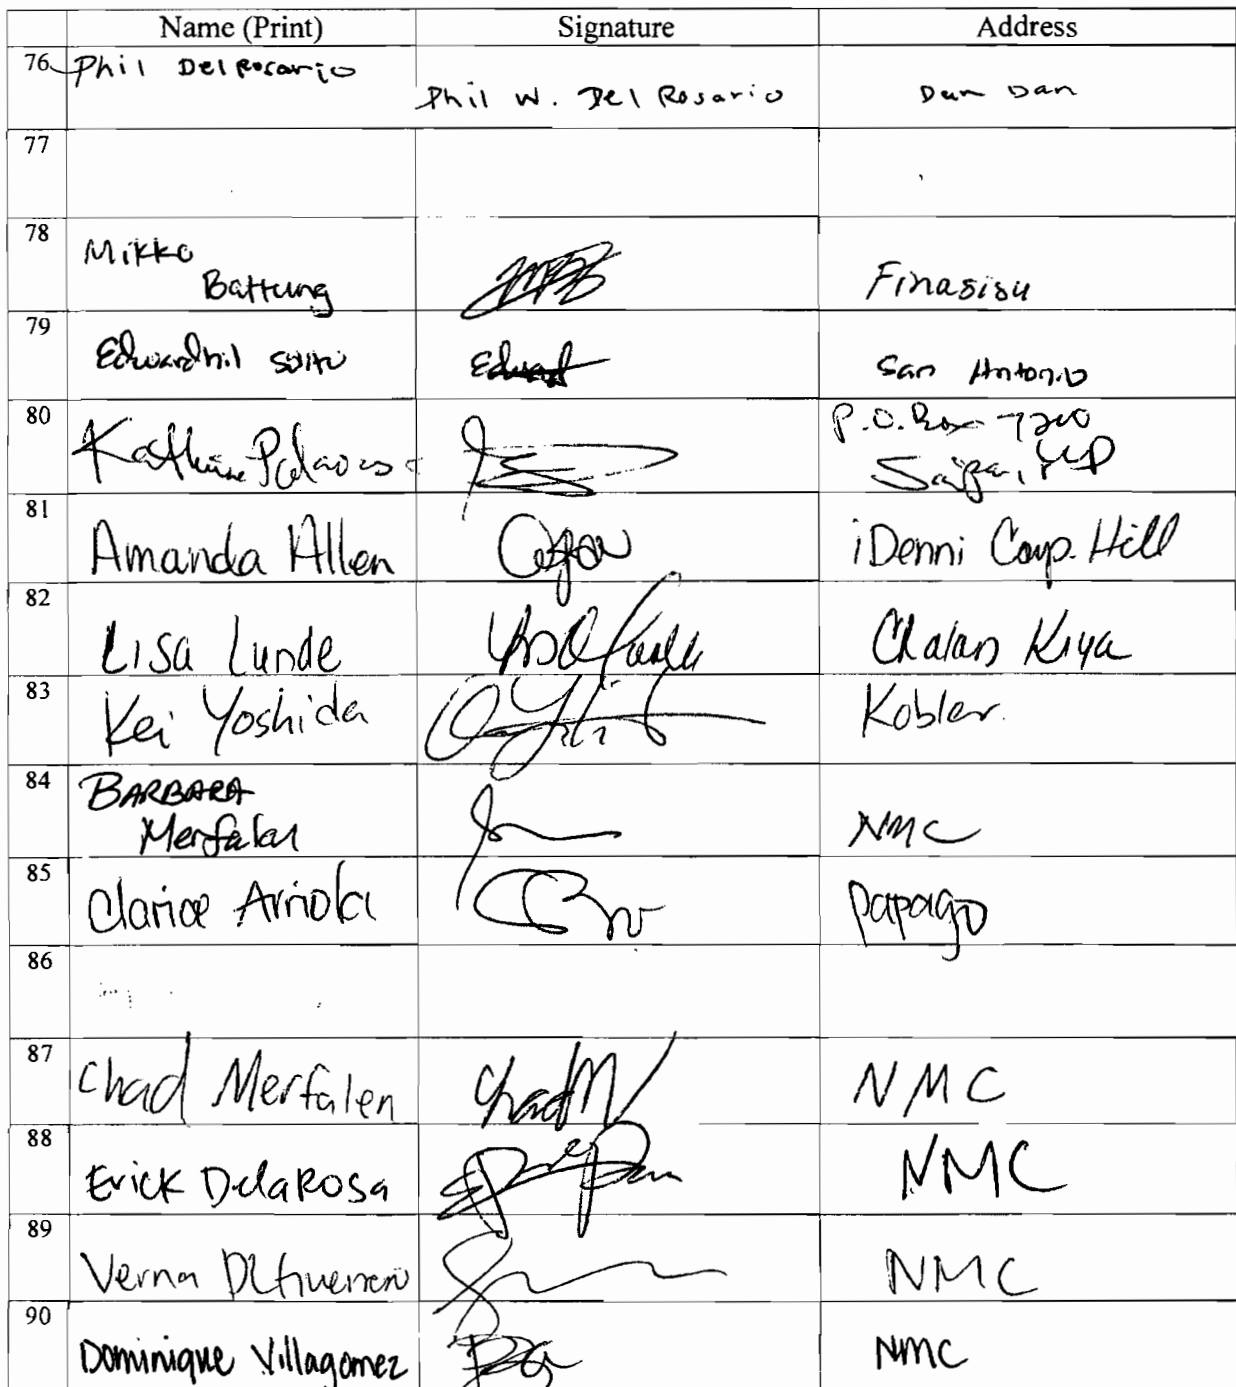 Name (Print) Signature Address
76 Phil DelRosario Phil W. Del Rosario Dan Dan
77
78 Mikko
Battung Finasisu
79 Edwardhil San Antonio
80 P.O. Box
Saipan, MP
81 Amanda Allen iDenni Cap. Hill
82 Lisa Lunde Chalan Kiya
83 Kei Yoshida Kobler
84 BARBARA
Merfalen NMC
85 Clarice Arriola Papago
86
87 Chad Merfalen Chad M NMC
88 Erick DelaRosa NMC
89 Verna NMC
90 Dominique Villagomez NMC